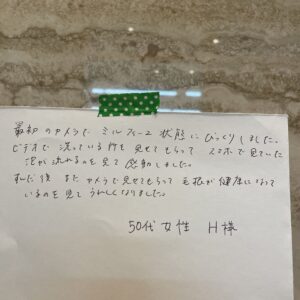 最初のカメラで ミルフィーユ状態にびっくりしました。
ビデオで 洗っている所を見せてもらって スマホで見ていた
泡が流れるのを見て 感動しました。
また カメラで見せてもらって 毛根が健康になって
いるのを見て うれしくなりました。
50代女性 H様